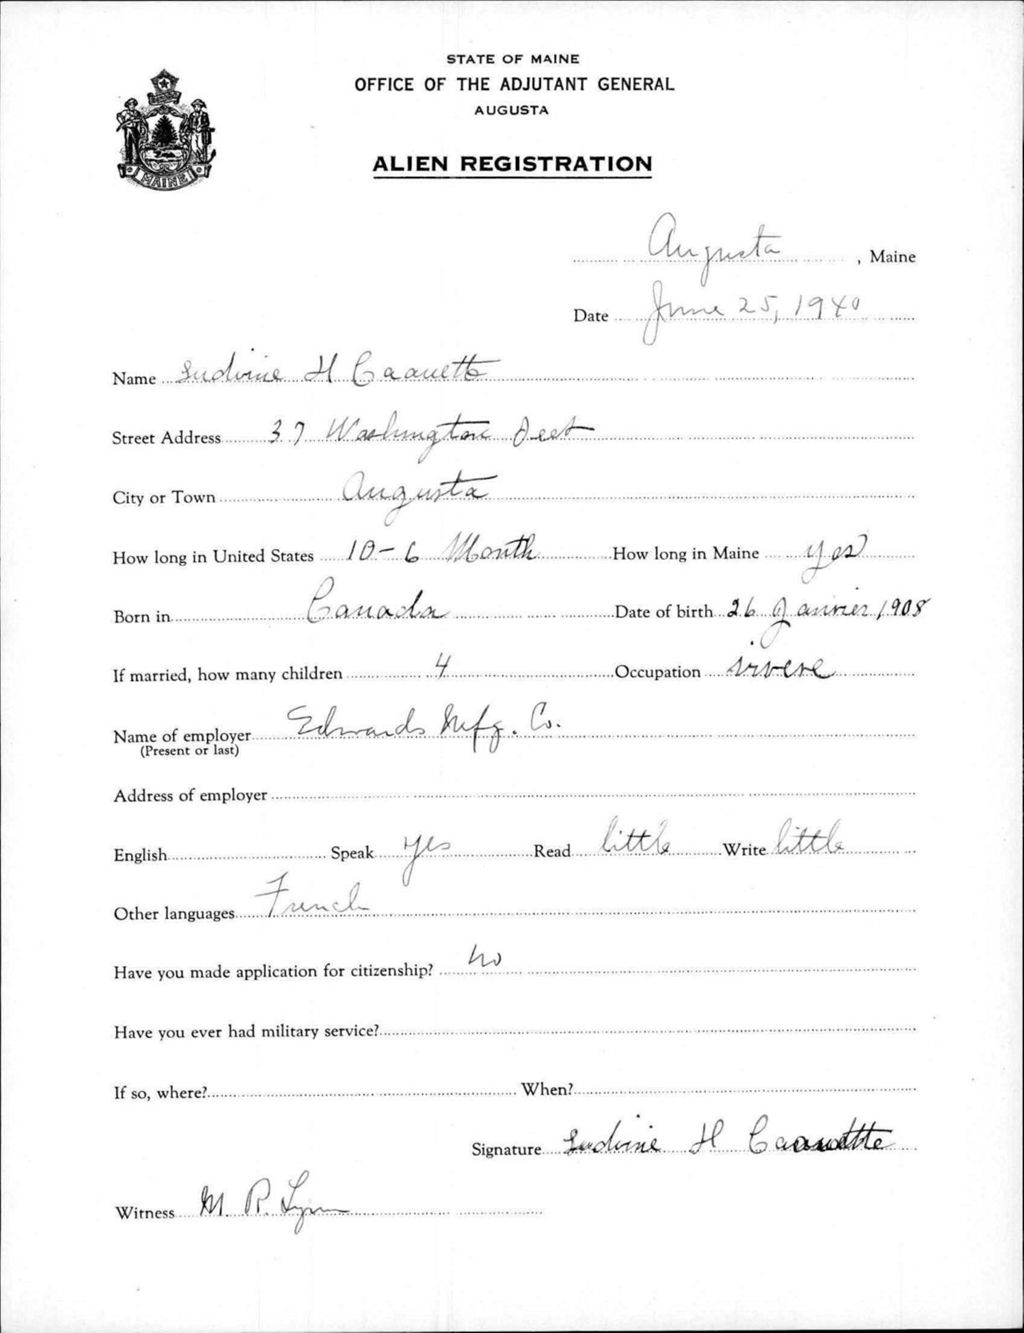 STATE OF MAINE
OFFICE OF THE ADJUTANT GENERAL
AUGUSTA
ALIEN REGISTRATION
MAINE
Augusta, Maine
Date June 25, 1940
Name Ludivine H Caouette
Street Address 37 Washington
City or Town Augusta
How long in United States 10-6 Month How long in Maine yes
Born in Canada Date of birth 26 Janvier 1908
If married, how many children 4 Occupation
Name of employer Edwards Mfg. Co.
(Present or last)
Address of employer
English Speak yes Read little Write little
Other languages French
Have you made application for citizenship? no
Have you ever had military service?
If so, where? When?
Signature Ludivine H Caouette
Witness M. R. Lynn